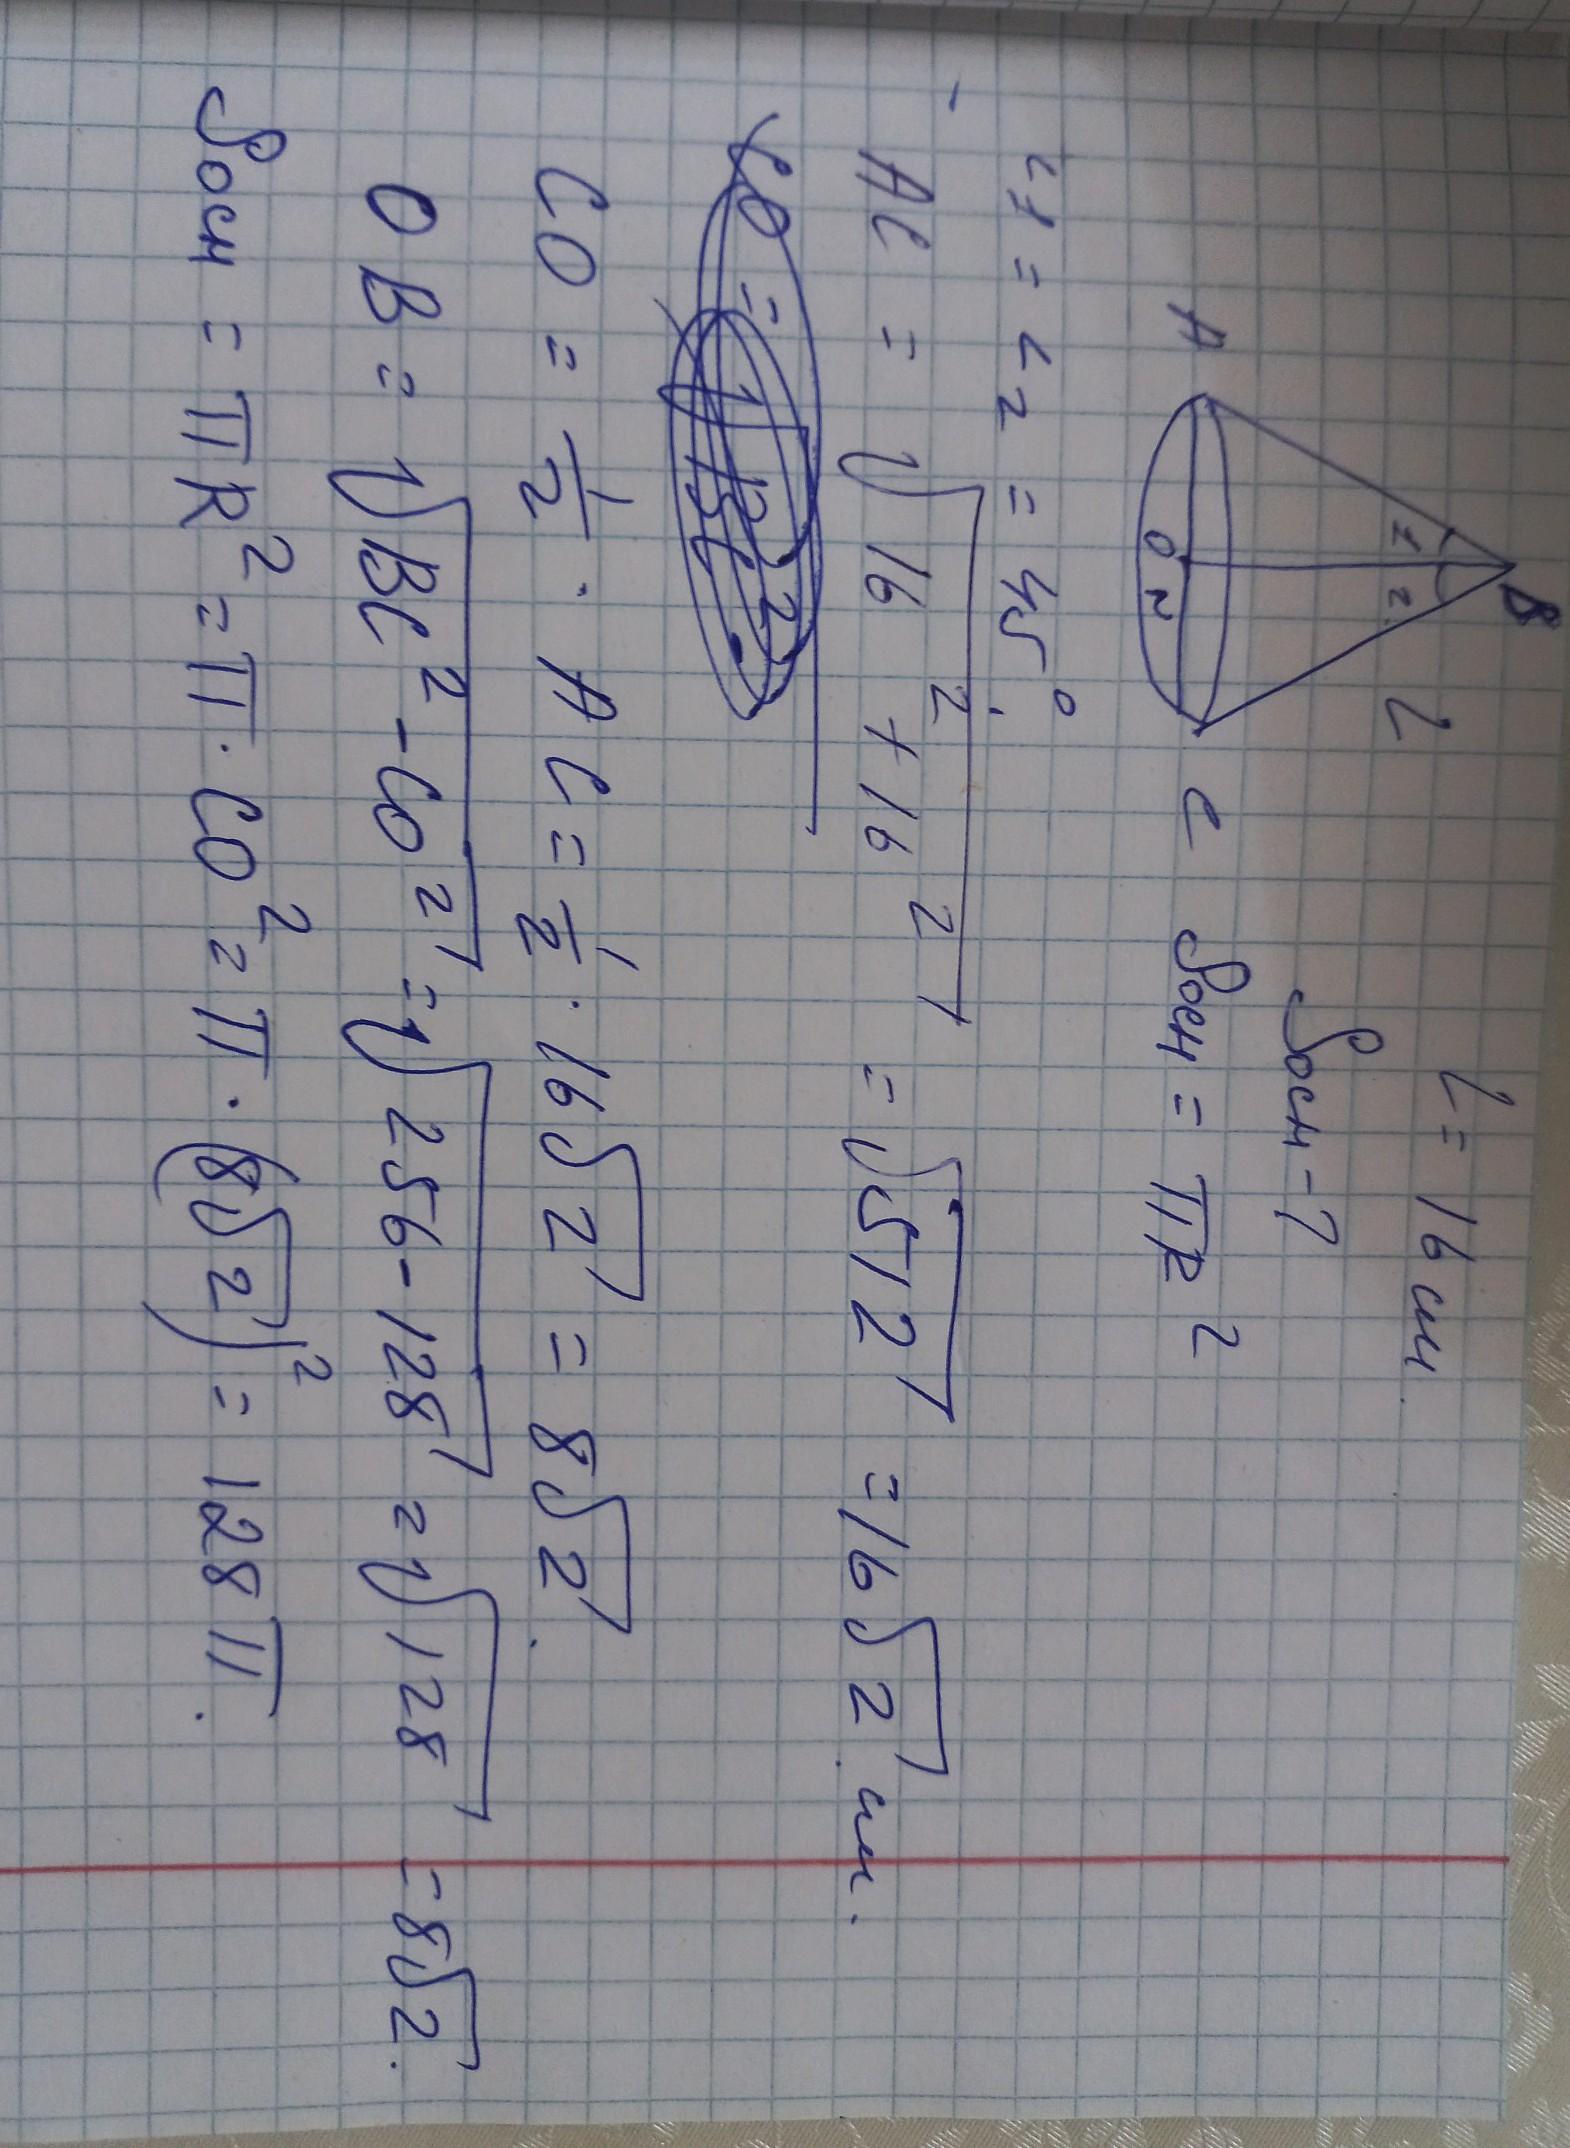 B
1 2
L
L = 16 см.
Sосн - ?
A
O
N
C
Sосн = πR²
∠1 = ∠2 = 45°.
AC = √16² + 16² = √512 = 16√2 см.
CO = 1/2 · AC = 1/2 · 16√2 = 8√2.
OB = √BC² - CO² = √256 - 128 = √128 = 8√2.
Sосн = πR² = π · CO² = π · (8√2)² = 128π.